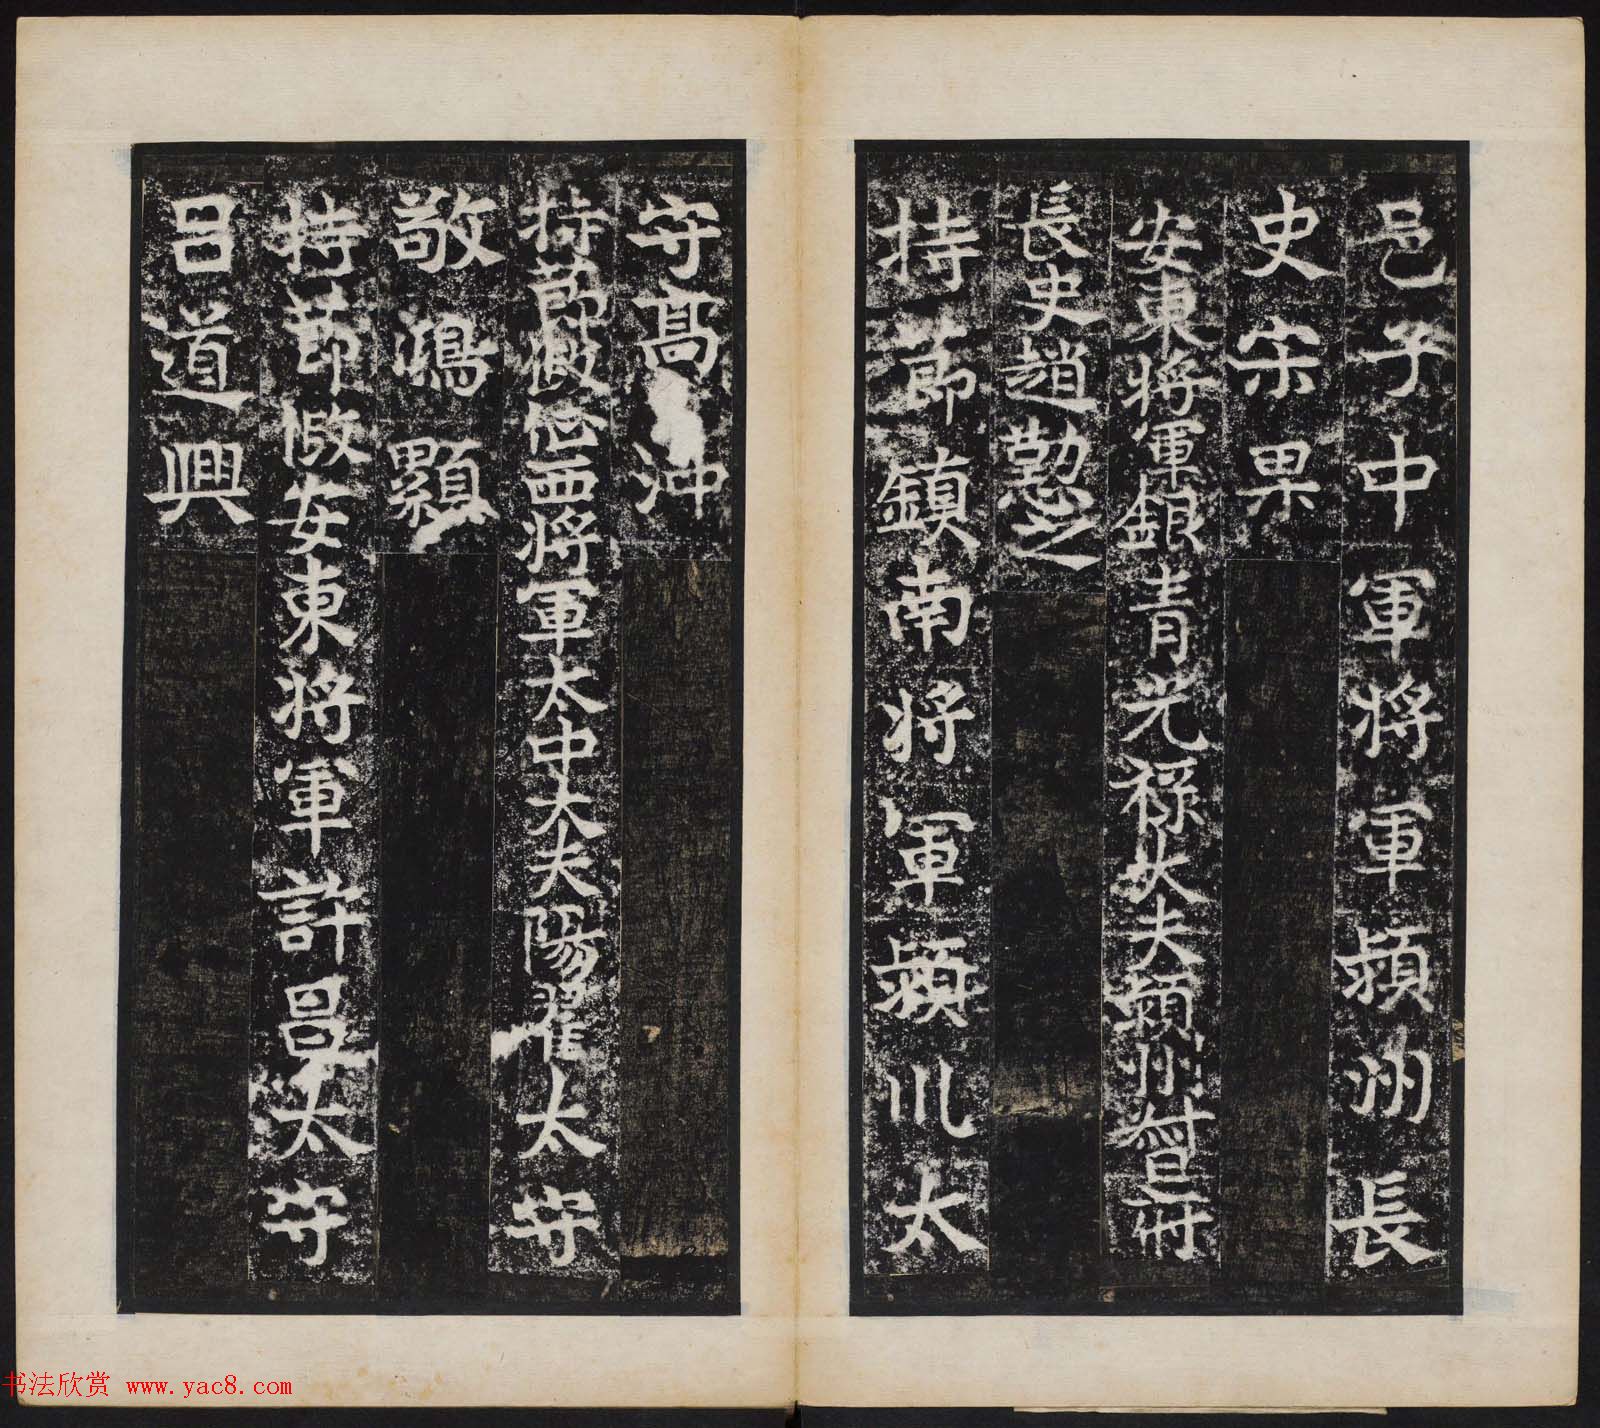 邑子中軍將軍潁州長
史宋果
安東將軍銀青光祿大夫潁州督府
長史趙懃之
持節鎮南將軍潁川太
守高沖
持節假征西將軍太中大夫陽翟太守
敬鴻顯
持節假安東將軍許昌太守
呂道興
书法欣赏 www.yac8.com